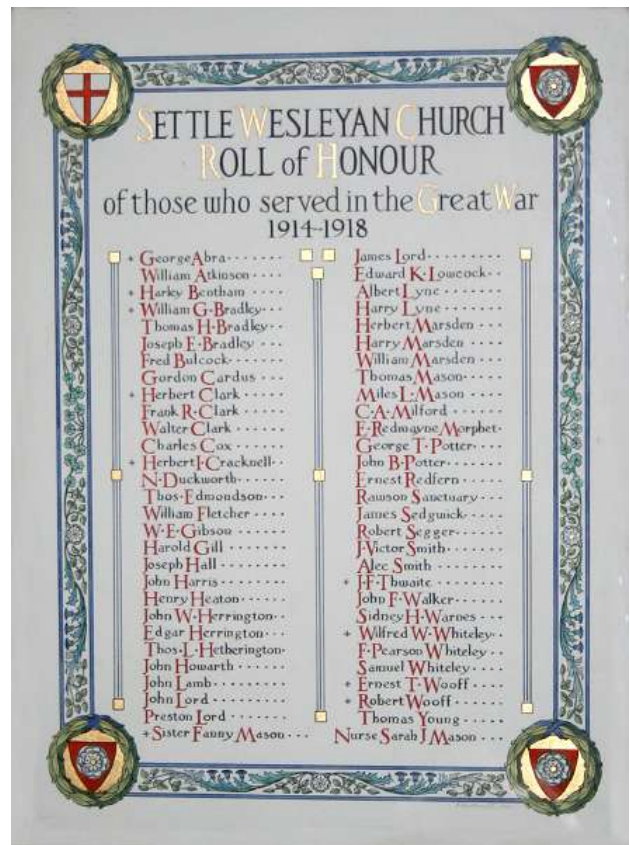 SETTLE WESLEYAN CHURCH
ROLL of HONOUR
of those who served in the Great War
1914-1918
+ George Abra
William Atkinson
+ Harley Bentham
+ William G. Bradley
Thomas H. Bradley
Joseph E. Bradley
Fred Bulcock
Gordon Cardus
+ Herbert Clark
Frank R. Clark
Walter Clark
Charles Cox
+ Herbert J. Cracknell
N. Duckworth
Thos. Edmondson
William Fletcher
W. E. Gibson
Harold Gill
Joseph Hall
John Harris
Henry Heaton
John W. Herrington
Edgar Herrington
Thos. L. Hetherington
John Howarth
John Lamb
John Lord
Preston Lord
+ Sister Fanny Mason
James Lord
Edward K. Lowcock
Albert Lyne
Harry Lyne
Herbert Marsden
Harry Marsden
William Marsden
Thomas Mason
Miles L. Mason
C. A. Milford
E. Redmayne Morphet
George T. Potter
John B. Potter
Ernest Redfern
Rawson Sanctuary
James Sedgwick
Robert Segger
J. Victor Smith
Alec Smith
+ J. F. Thwaite
John F. Walker
Sidney H. Warnes
+ Wilfred W. Whiteley
F. Pearson Whiteley
Samuel Whiteley
+ Ernest T. Wooff
+ Robert Wooff
Thomas Young
Nurse Sarah J Mason